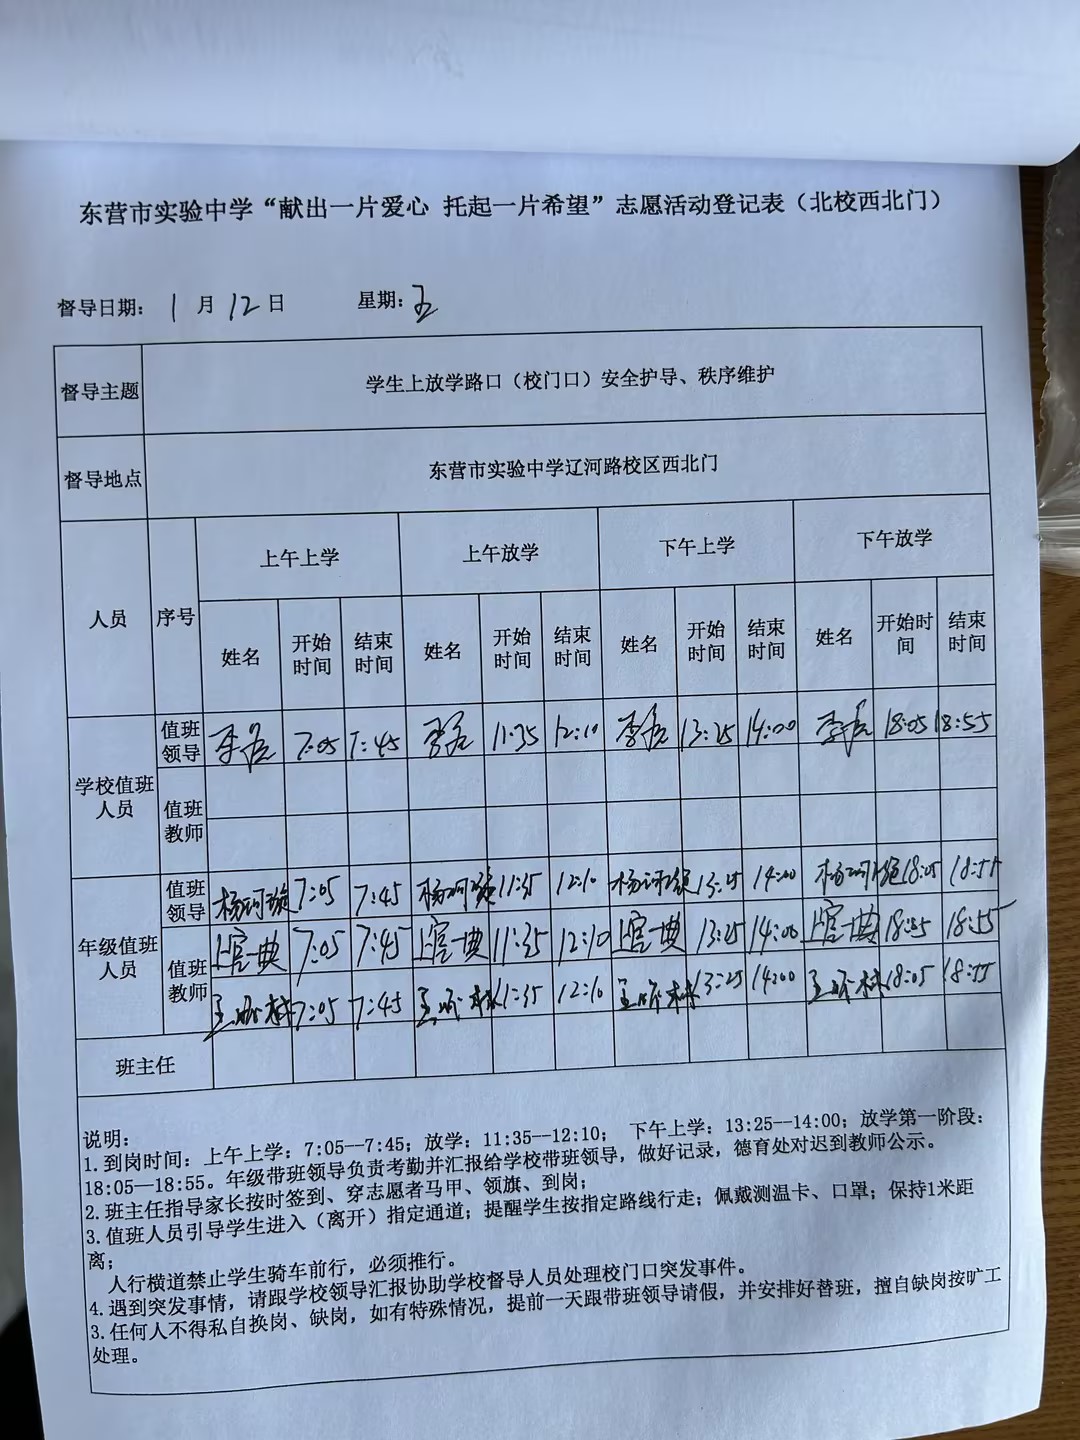 东营市实验中学“献出一片爱心 托起一片希望”志愿活动登记表（北校西北门）
督导日期： 1 月 12 日 星期：五
督导主题 学生上放学路口（校门口）安全护导、秩序维护
督导地点 东营市实验中学辽河路校区西北门
人员 序号 上午上学 上午放学 下午上学 下午放学
姓名 开始时间 结束时间 姓名 开始时间 结束时间 姓名 开始时间 结束时间 姓名 开始时间 结束时间
学校值班人员 值班领导 7:05 7:45 11:35 12:10 13:25 14:00 18:05 18:55
值班教师
年级值班人员 值班领导 7:05 7:45 11:35 12:10 13:25 14:00 18:05 18:55
值班教师 上官一典 7:05 7:45 上官一典 11:35 12:10 上官一典 13:25 14:00 上官一典 18:05 18:55
7:05 7:45 11:35 12:10 13:25 14:00 18:05 18:55
班主任
说明：
1.到岗时间：上午上学：7:05--7:45；放学：11:35--12:10； 下午上学：13:25--14:00；放学第一阶段：
18:05—18:55。年级带班领导负责考勤并汇报给学校带班领导，做好记录，德育处对迟到教师公示。
2.班主任指导家长按时签到、穿志愿者马甲、领旗、到岗；
3.值班人员引导学生进入（离开）指定通道；提醒学生按指定路线行走；佩戴测温卡、口罩；保持1米距
离；
人行横道禁止学生骑车前行，必须推行。
4.遇到突发事情，请跟学校领导汇报协助学校督导人员处理校门口突发事件。
3.任何人不得私自换岗、缺岗，如有特殊情况，提前一天跟带班领导请假，并安排好替班，擅自缺岗按旷工
处理。